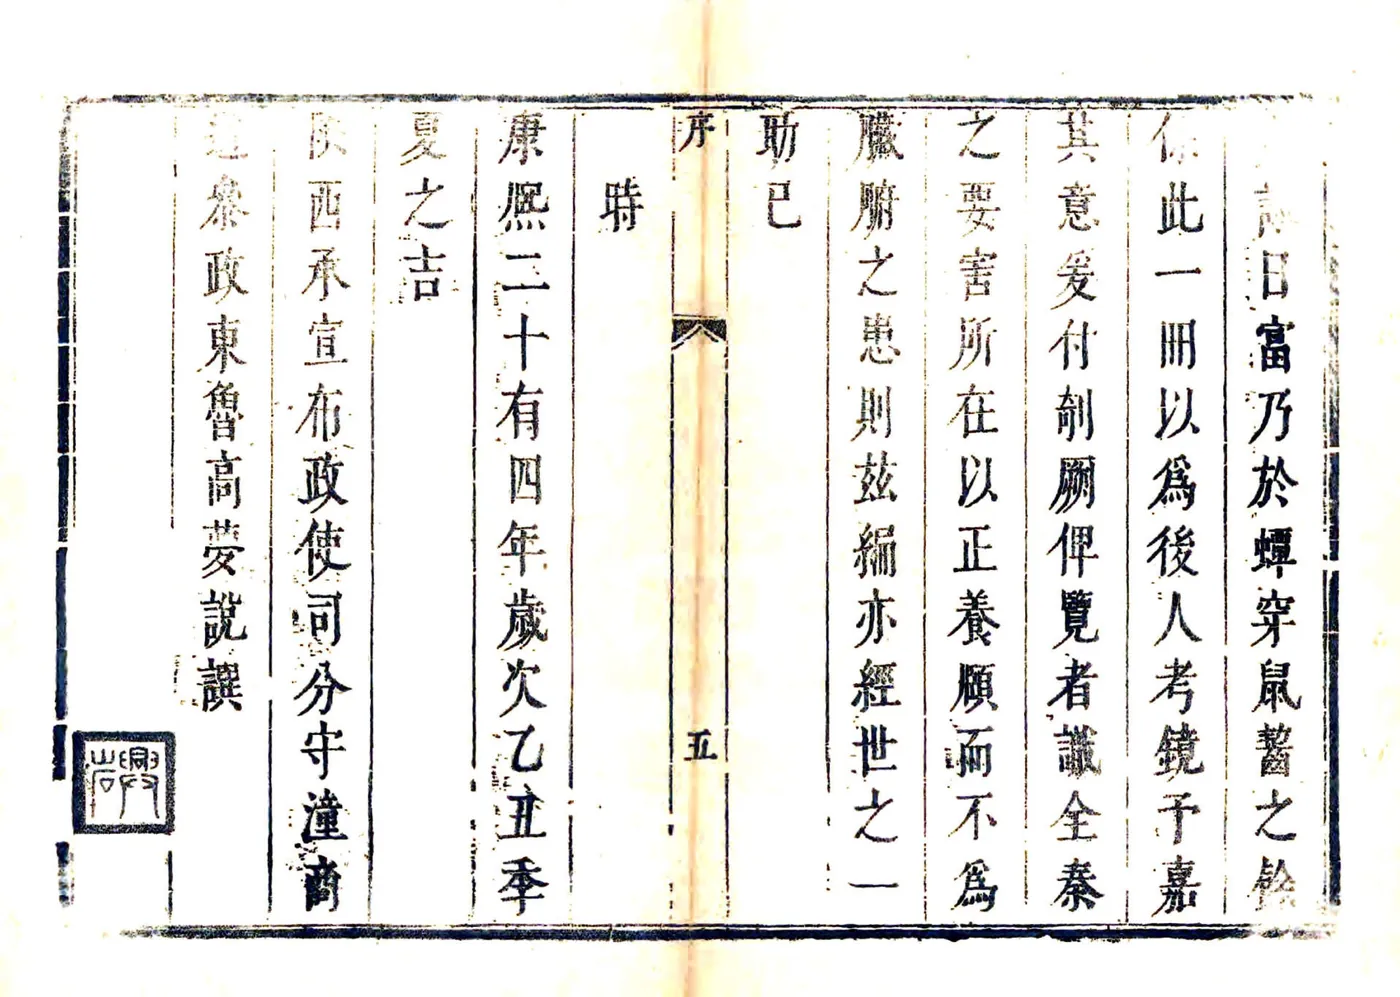 日富乃於蟫穿鼠齧之餘
保此一冊以為後人考鏡予嘉
其意爰付剞劂俾覽者識全秦
之要害所在以正養頤而不為
臟腑之患則茲編亦經世之一
助已
序
五
時
康熙二十有四年歲次乙丑季
夏之吉
陝西承宣布政使司分守潼商
道叅政東魯高夢說譔